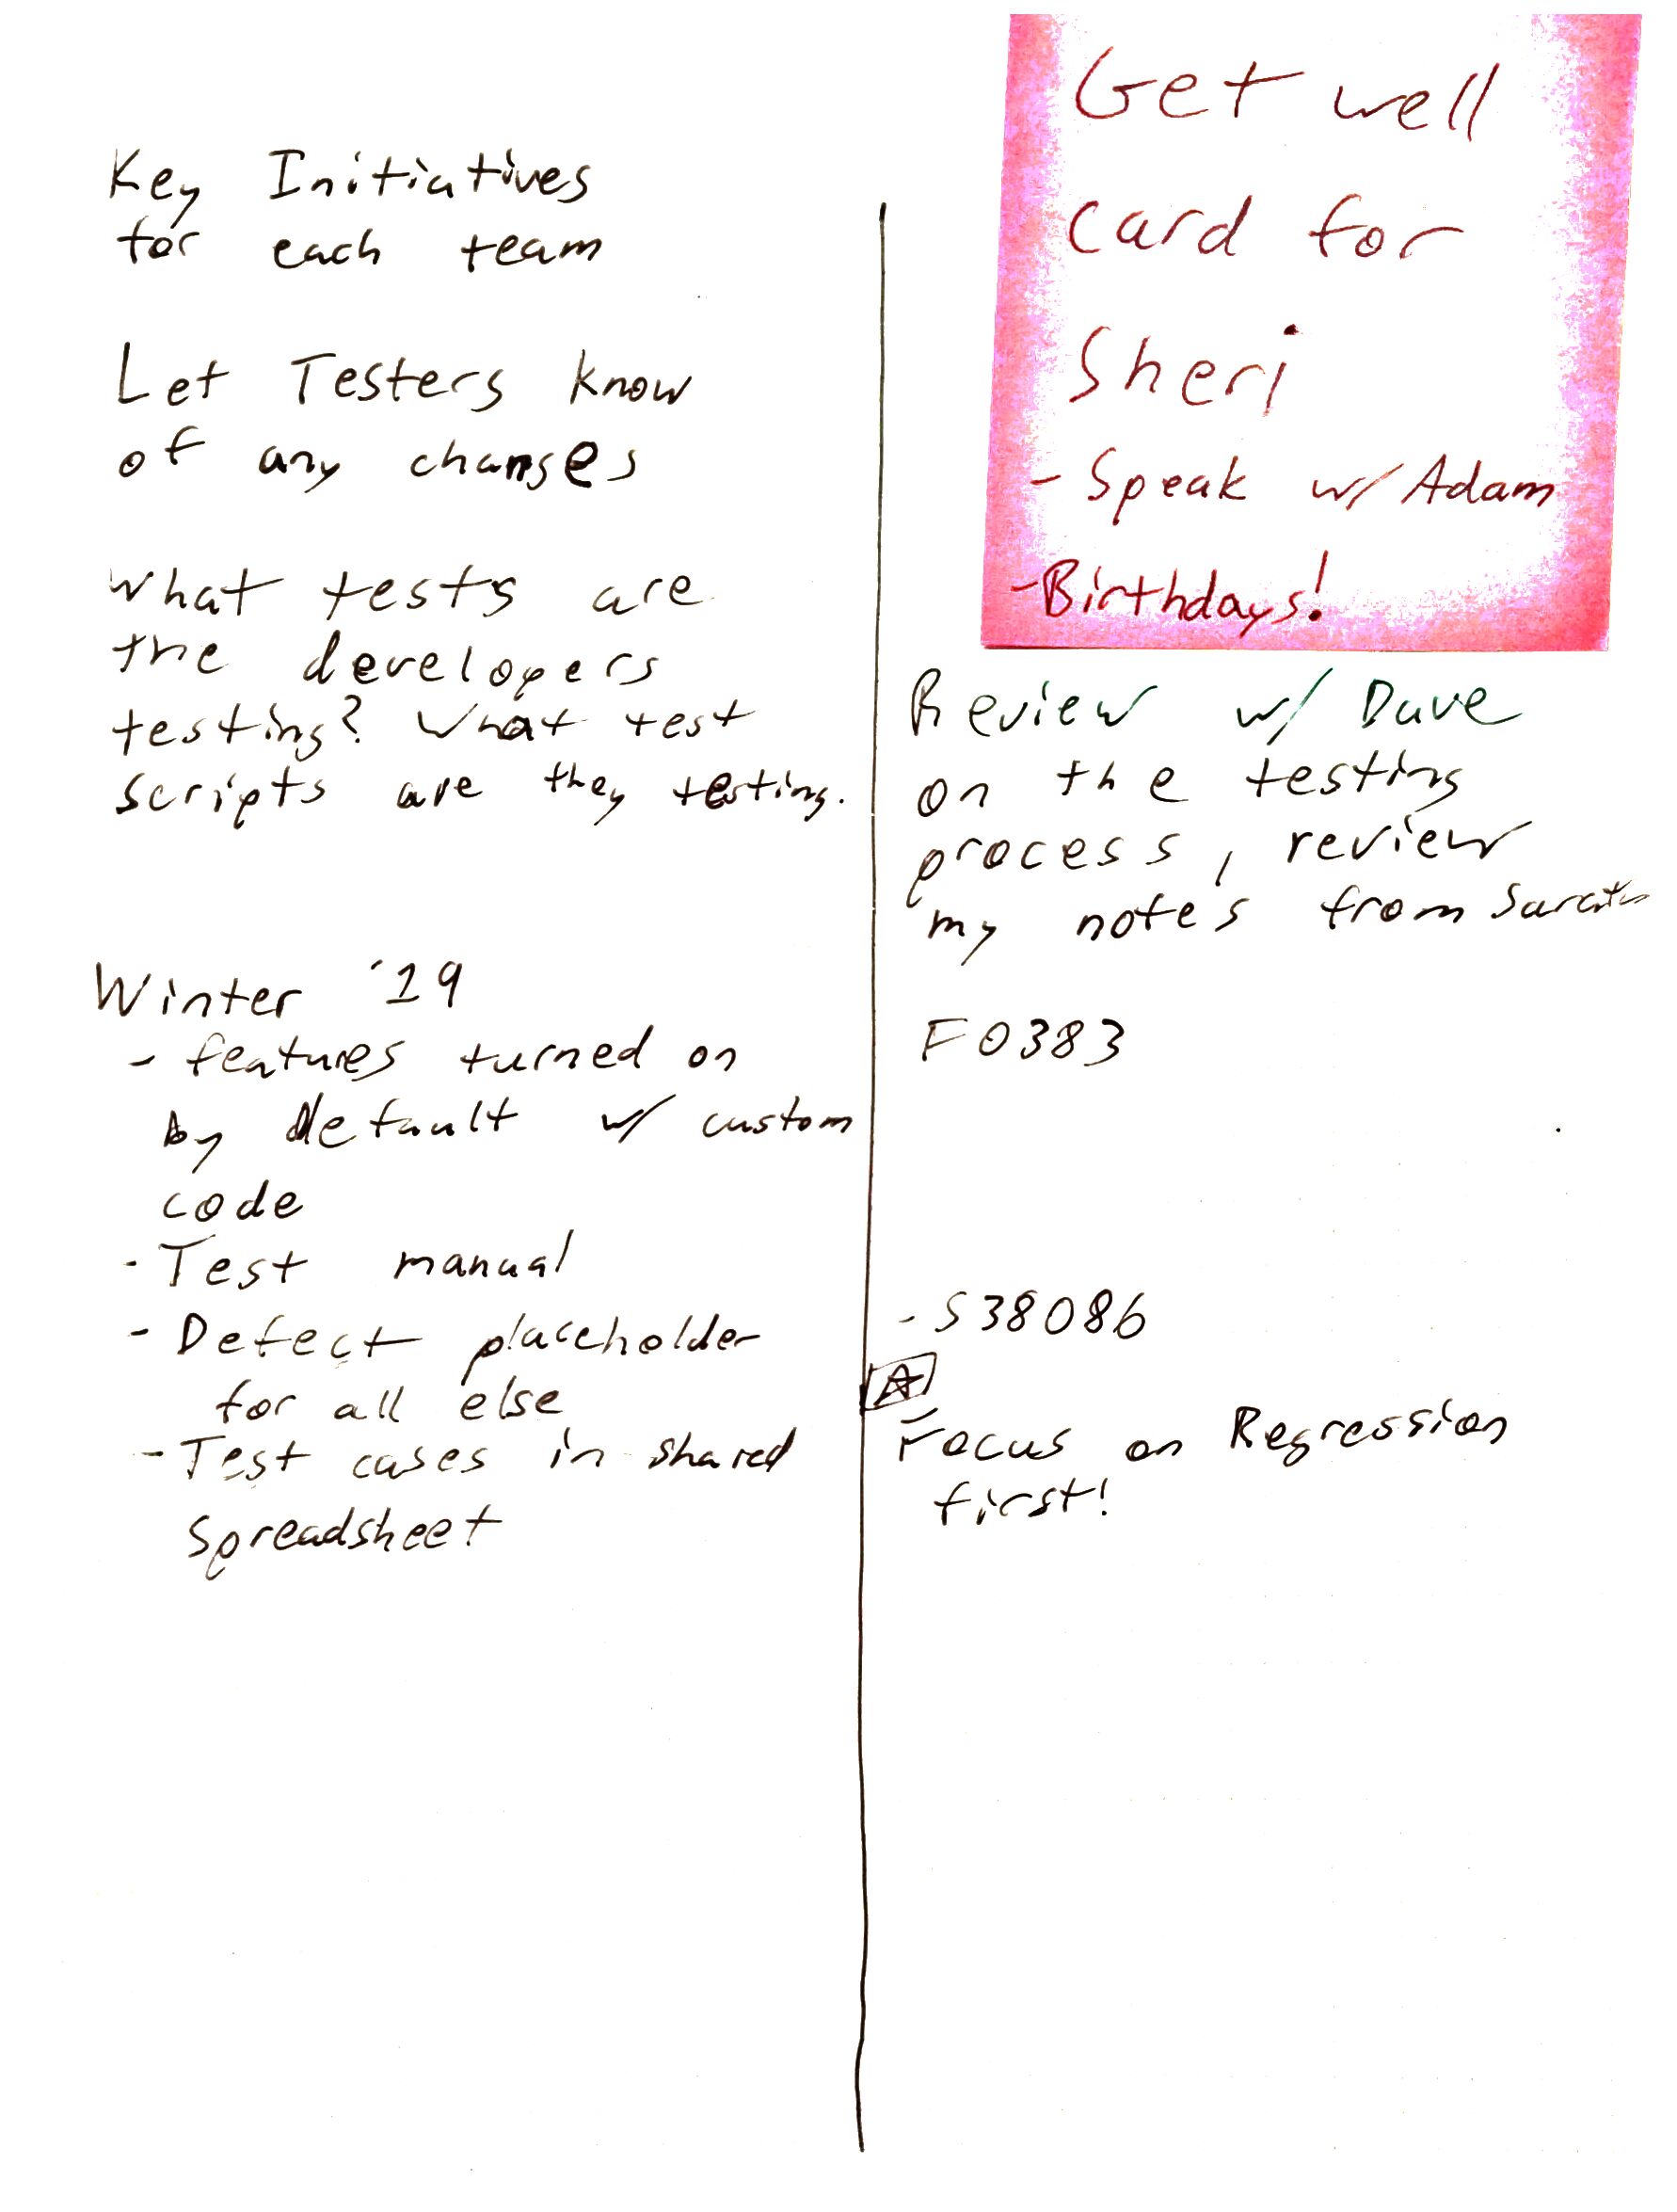 Key Initiatives
for each team
Let Testers know
of any changes
What tests are
the developers
testing? What test
scripts are they testing.
Winter '19
- features turned on
by default w/ custom
code
- Test manual
- Defect placeholder
for all else
- Test cases in shared
spreadsheet
Get well
card for
Sheri
- Speak w/ Adam
- Birthdays!
Review w/ Dave
on the testing
process, review
my notes from
F0383
- S38086
Focus on Regression
first!